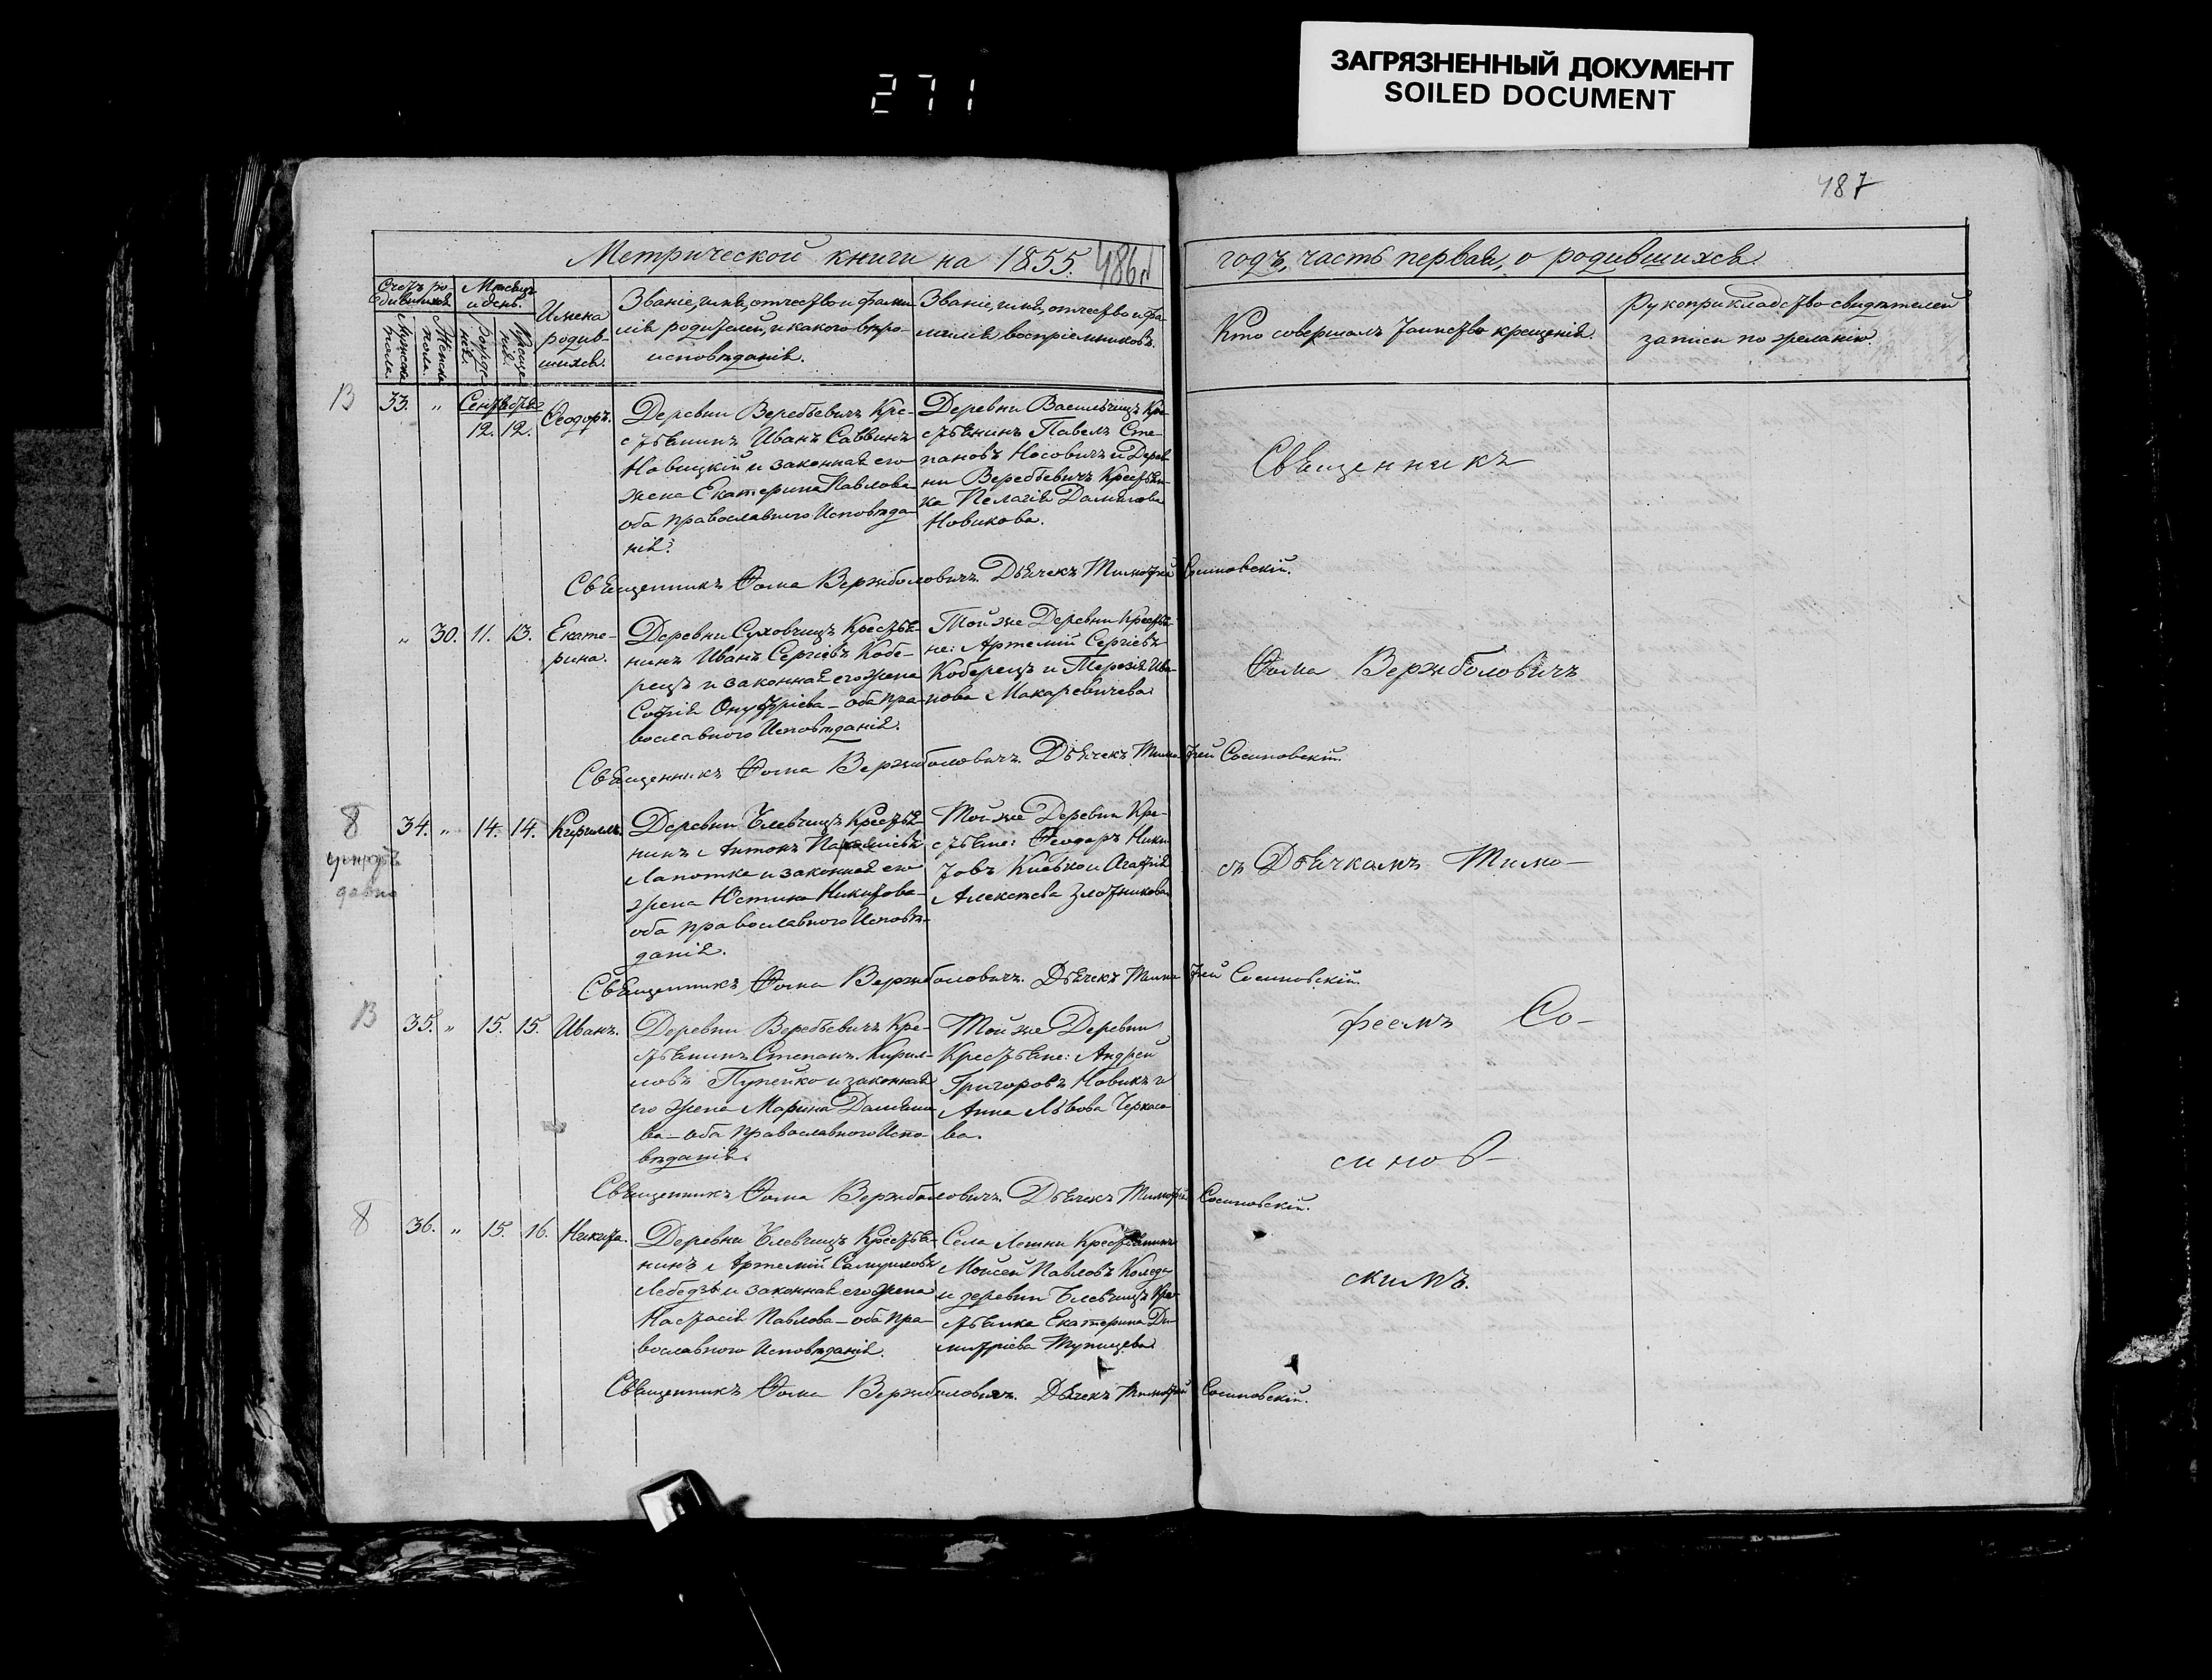 ЗАГРЯЗНЕННЫЙ ДОКУМЕНТ
SOILED DOCUMENT
271
487
Метрической книги на 1855.
486
годъ, часть первая, о родившихся
Счетъ родившихся
Мѣсяцъ и день.
Мужска пола.
Женска пола.
Рожденія.
Крещенія.
Имена
родив-
шихся.
Званіе, имя, отчество и фами
лія родителей, и какого вѣро-
исповѣданія.
Званіе, имя, отчество и фа-
милія воспріемниковъ.
Кто совершалъ таинство крещенія.
Рукоприкладство свидѣтелей
записи по желанію.
В
33. " Сентября
12. 12. Ѳеодоръ.
Деревни Веребьевичъ Кре-
стьянинъ Иванъ Саввинъ
Новицкій и законная его
жена Екатерина Павлова
оба православнаго Исповѣда-
нія.
Деревни Васильчицъ Кре
стьянинъ Павелъ Сте-
пановъ Носовичъ и Дерев
ни Веребьевичъ Крестьян-
ка Пелагія Даміянова
Новикова.
Священникъ Ѳома Вержболовичъ. Дьячекъ Тимофей Сосиновскій.
" 30. 11. 13. Екате-
рина.
Деревни Суховчицъ Крестья-
нинъ Иванъ Сергіевъ Кобе-
рецъ и законная его жена
Софія Онуфріева – оба пра-
вославнаго Исповѣданія.
Той же Деревни Крестья-
не: Артемій Сергіевъ
Коберецъ и Терезія Ива-
нова Макаревичева
Священникъ Ѳома Вержболовичъ. Дьячекъ Тимофей Сосиновскій.
8
34. " 14. 14. Кириллъ.
давно
Деревни Блевчицъ Крестья-
нинъ Антонъ
Лапотка и законная его
жена Юстина Никитова
оба православнаго Исповѣ-
данія.
Той же Деревни Кре-
стьяне: Ѳеодоръ Ники
товъ и Агафія
Алексѣева Злотникова
Священникъ Ѳома Вержболовичъ. Дьячекъ Тимофей Сосиновскій.
В
35. " 15. 15. Иванъ.
Деревни Веребьевичъ Кре-
стьянинъ Степанъ Кирил-
ловъ Пупейко и законная
его жена Марина Даміяно
ва – оба православнаго Испо-
вѣданія.
Той же Деревни
Крестьяне: Андрей
Григоровъ Новикъ и
Анна Львова Черкасо
ва.
Священникъ Ѳома Вержболовичъ. Дьячекъ Тимофей Сосиновскій.
8
36. " 15. 16. Никита.
Деревни Блевчицъ Крестья-
нинъ Артемій Самуиловъ
Лебедзь и законная его жена
Настасія Павлова – оба пра-
вославнаго Исповѣданія.
Села Лешни Крестьянинъ
Моисей Павловъ Коледа
и деревни Блевчицъ Кре-
стьянка Екатерина Ди-
митріева Тупицева
Священникъ Ѳома Вержболовичъ. Дьячекъ Тимофей Сосиновскій.
Священникъ
Ѳома Вержболовичъ
съ Дьячкомъ Тимо-
феемъ Со-
синов-
скимъ.